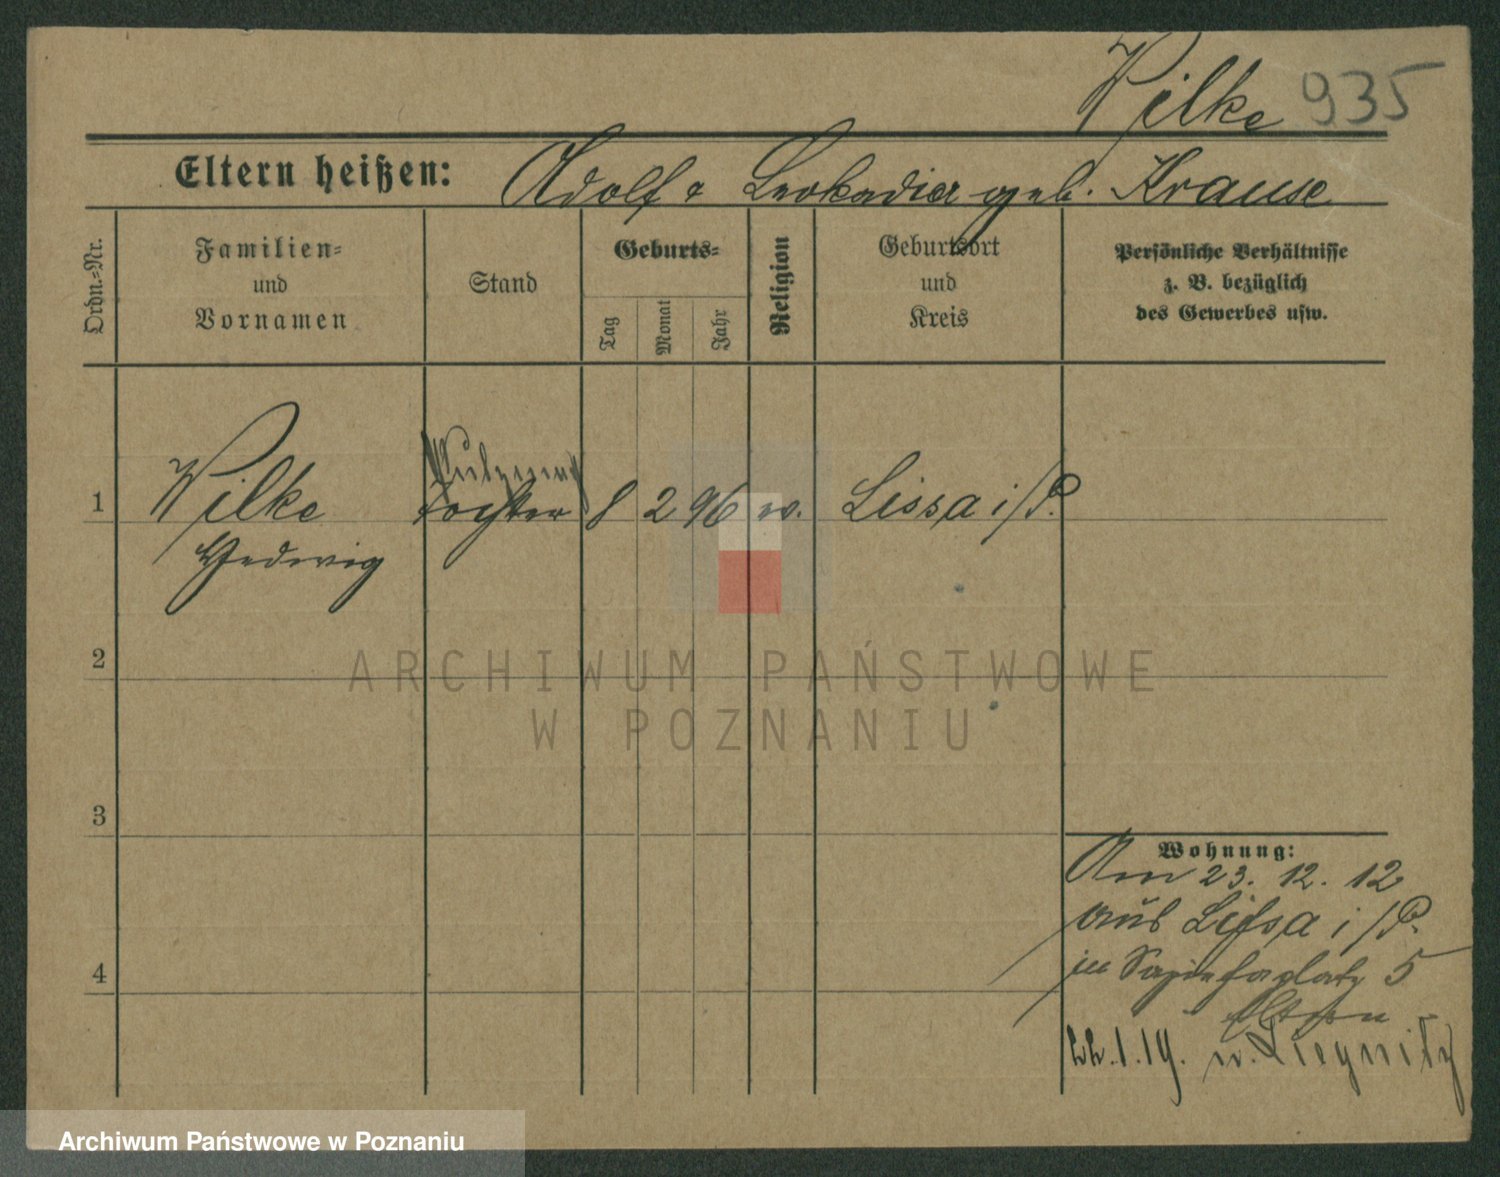 Wilke 935
Eltern heißen: Adolf & Leokadia geb. Krause
Ordn.=Nr.
Familien=
und
Vornamen
Stand
Geburts=
Tag
Monat
Jahr
Religion
Geburtsort
und
Kreis
Persönliche Verhältnisse
z. B. bezüglich
des Gewerbes usw.
1 Wilke Tochter 8 2 96 ev. Lissa i/P.
Hedwig
2
3
4
Wohnung:
Am 23. 12. 12
aus Lissa i/P.
in Sapiehaplatz 5
Eltern
22.1.19. n. Liegnitz
ARCHIWUM PAŃSTWOWE
W POZNANIU
Archiwum Państwowe w Poznaniu